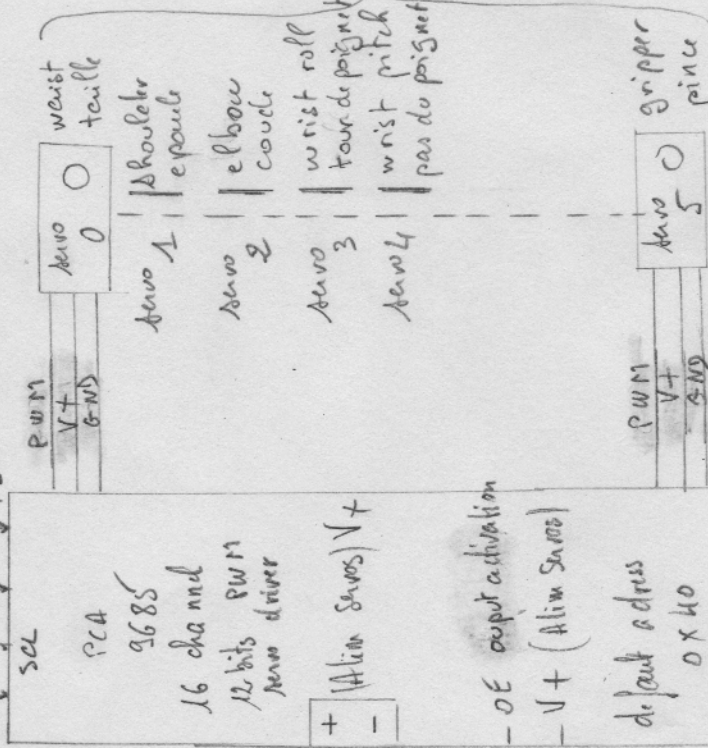 SCL
PCA
9685
16 channel
12 bits PWM
servo driver
+
-
(Alim servos) V+
- OE ouput activation
- V+ (Alim Servos)
defaut adress
0x40
PWM
V+
GND
servo
0
waist
taille
servo
1
shoulder
epaule
servo
2
elbow
coude
servo
3
wrist roll
tour de poignet
servo 4
wrist pitch
pas du poignet
PWM
V+
GND
servo
5
gripper
pince